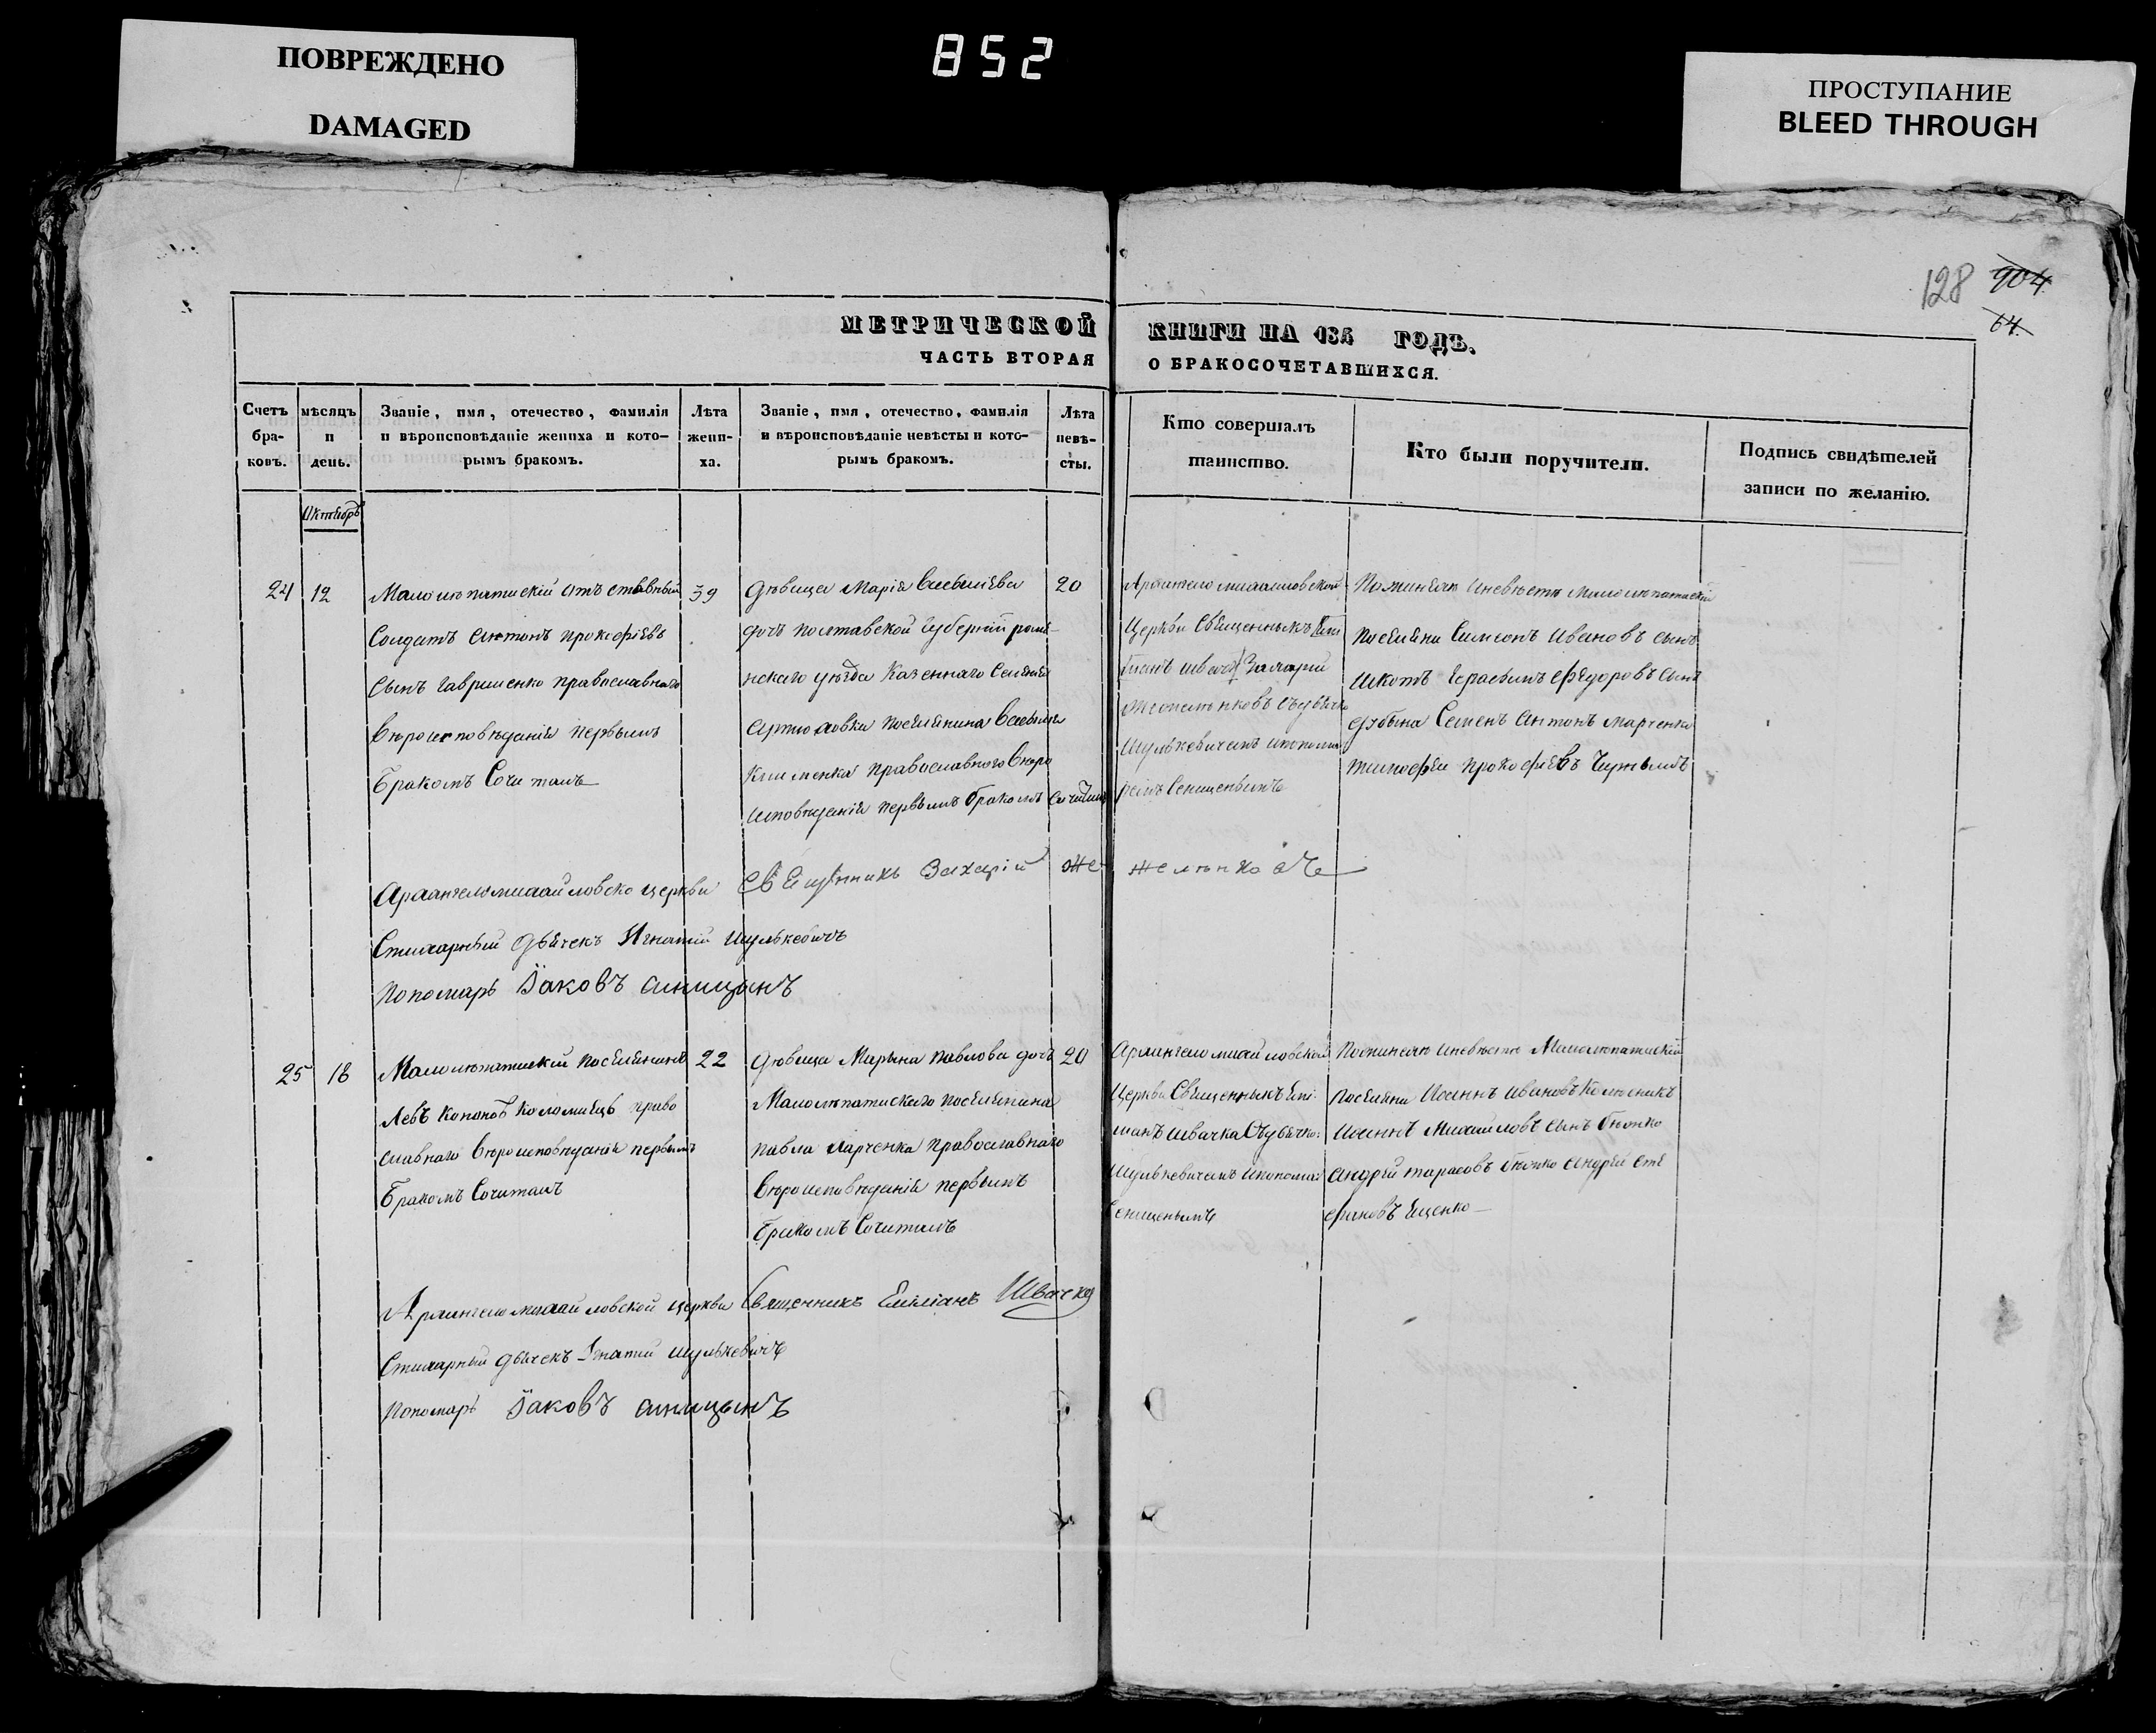 ПОВРЕЖДЕНО
DAMAGED
852
ПРОСТУПАНИЕ
BLEED THROUGH
128 904
64
МЕТРИЧЕСКОЙ КНИГИ НА 185 ГОДЪ.
ЧАСТЬ ВТОРАЯ О БРАКОСОЧЕТАВШИХСЯ.
Счетъ бра- ковъ.
мѣсяцъ и день.
Званіе, имя, отечество, фамилія
и вѣроисповѣданіе жениха и кото-
рымъ бракомъ.
Лѣта жени- ха.
Званіе, имя, отечество, фамилія
и вѣроисповѣданіе невѣсты и кото-
рымъ бракомъ.
Лѣта невѣ- сты.
Кто совершалъ
таинство.
Кто были поручители.
Подпись свидѣтелей
записи по желанію.
Октябрь
24 12
отъ ставный
Солдатъ Антонъ Прокофіевъ
Сынъ Гавриленко православнаго
вѣроисповѣданія первымъ
бракомъ Сочитанъ
39
Дѣвица Марія Васильева
дочь полтавской губерніи роме-
нскаго уѣзда Казеннаго Селенія
Артюховки поселянина Василія
Клименка православнаго вѣро
исповѣданія первымъ бракомъ сочитана
20
Архангеломихайловской
Церкви Священникъ
Захарій
Шулькевичемъ
По женихѣ и невѣстѣ
поселяне Симеонъ Ивановъ сынъ
Герасимъ Федоровъ сынъ
Семенъ Антонъ Марченко
Тимофей Прокофіевъ
Архангеломихайловско церкви Священникъ Захарій
Стихарный Дьячекъ Игнатій Шулькевичъ
Пономарь Іаковъ Синицынъ
25 18
поселянинъ
Левъ Кононовъ Коломіецъ право
славнаго вѣроисповѣданія первымъ
бракомъ Сочитанъ
22
Дѣвица Марына Павлова дочь
поселянина
Павла Марченка православнаго
вѣроисповѣданія первымъ
бракомъ Сочитанъ
20
Архангеломихайловской
Церкви Священникъ Емі-
ліанъ Швачка Съ дьячко-
Шулькевичемъ и пономар
Синицынымъ
По женихѣ и невѣстѣ
поселяне Иоаннъ Ивановъ
Иоаннъ Михайловъ сынъ
Андрій Тарасовъ Андрей Сте
фановъ Ященко
Архангеломихайловской церкви Священникъ Емиліанъ Швачка
Стихарный Дьячекъ Игнатій Шулькевичъ
Пономарь Іаковъ Синицынъ